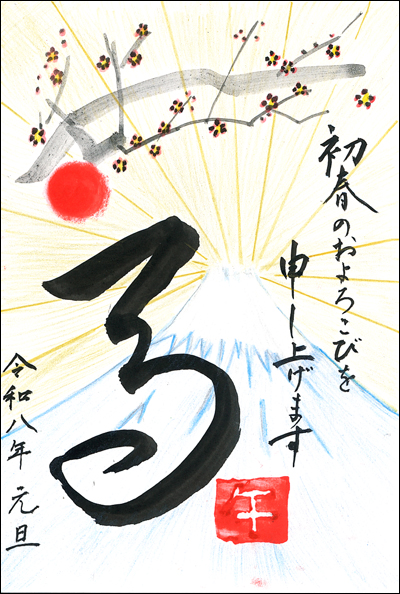 初春のおよろこびを
申し上げます
馬
午
令和八年 元旦